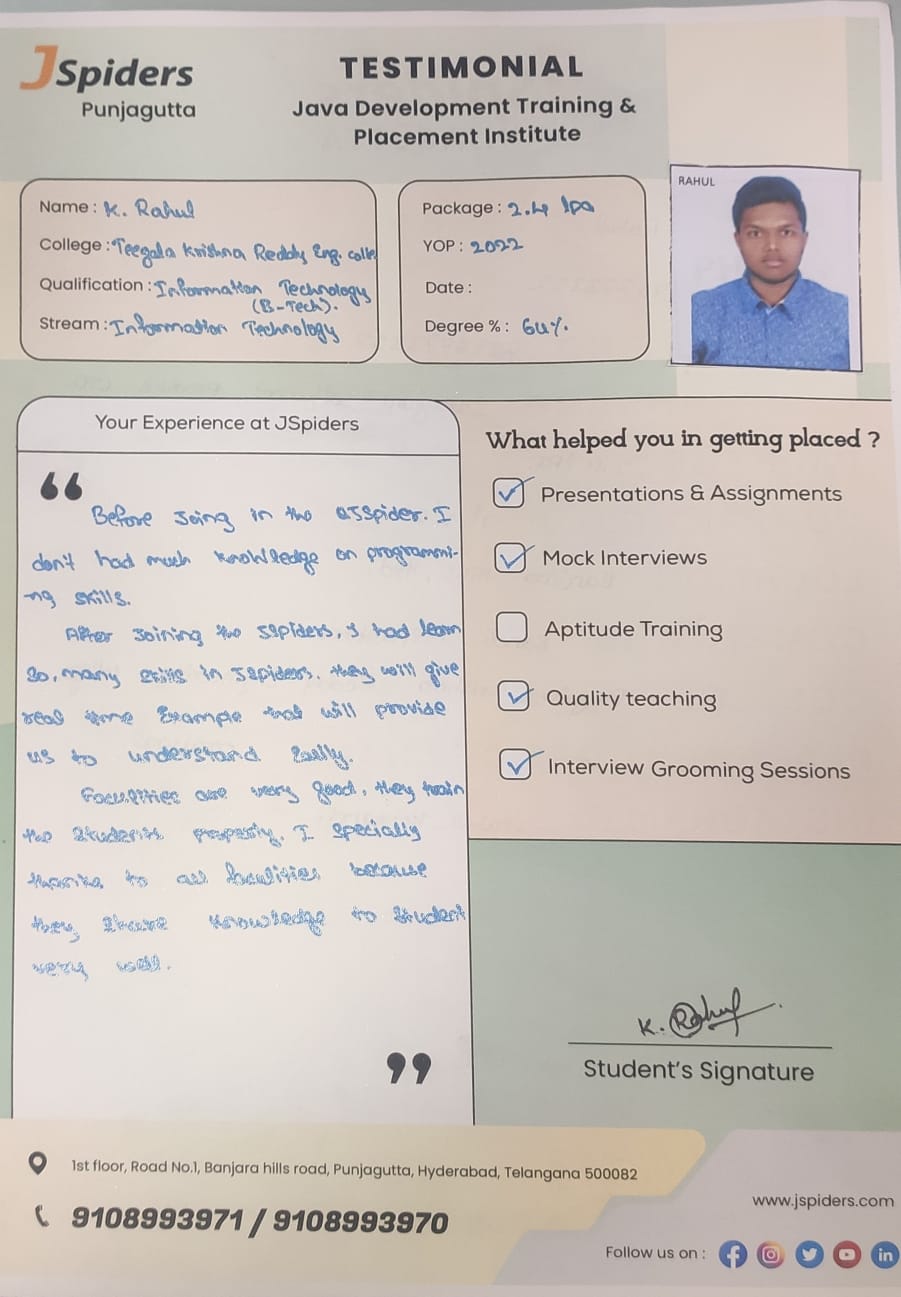 JSpiders
Punjagutta
TESTIMONIAL
Java Development Training &
Placement Institute
RAHUL
Name : K. Rahul
College : Teegala Krishna Reddy Eng. colle
Qualification : Information Technology
(B-Tech).
Stream : Information Technology
Package : 2.4 lpa
YOP : 2022
Date :
Degree % : 64%
Your Experience at JSpiders
“
Before Joing in the JSpider. I
don't had much knowledge on programmi-
ng skills.
After Joining the JSpiders, I had learn
So, many skills in JSpiders. they will give
real time Example that will provide
us to understand Easily.
Faculities are very good, they train
the Students properly. I specially
thanks to all faculities because
they share knowledge to student
very well.
”
What helped you in getting placed ?
Presentations & Assignments
Mock Interviews
Aptitude Training
Quality teaching
Interview Grooming Sessions
K. Rahul
Student's Signature
1st floor, Road No.1, Banjara hills road, Punjagutta, Hyderabad, Telangana 500082
9108993971 / 9108993970
www.jspiders.com
Follow us on :